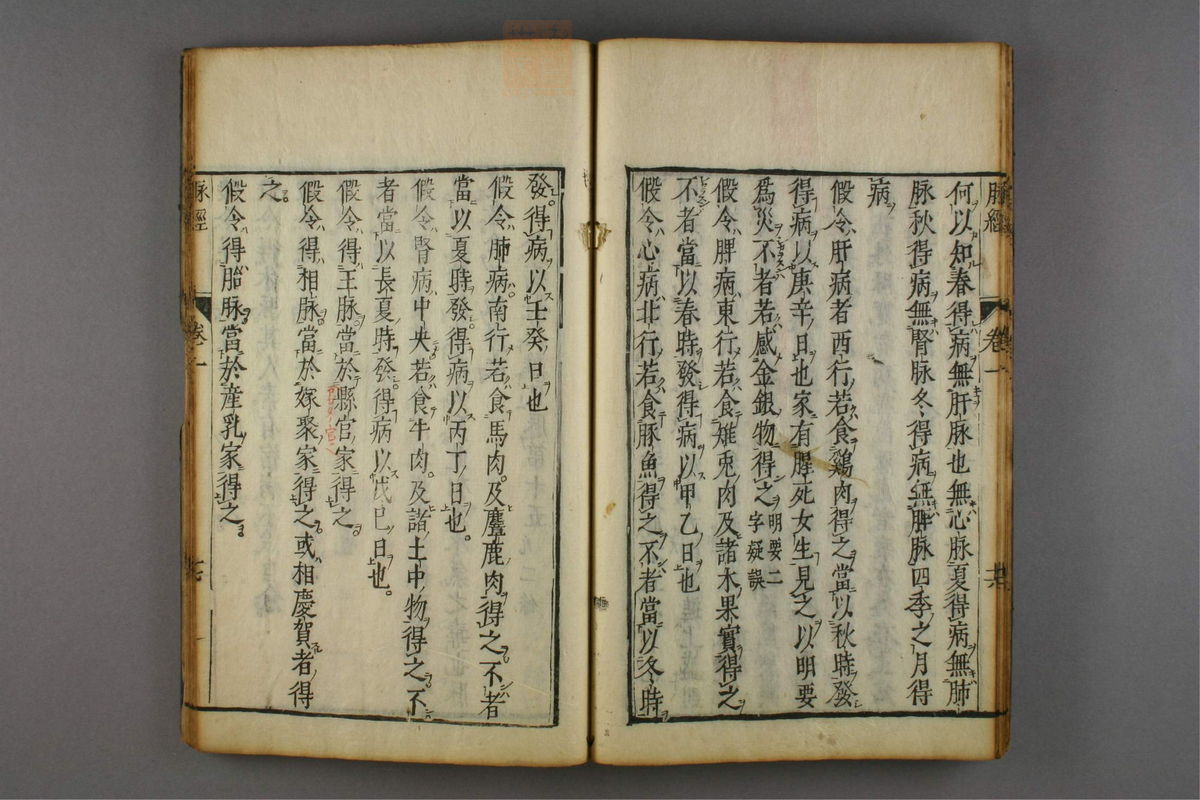 脉經 卷一 十六
何以知春得病無肝脉也無心脉夏得病無肺
脉秋得病無腎脉冬得病無脾脉四季之月得
病
假令肝病者西行若食鷄肉得之當以秋時發
得病以庚辛日也家有腥死女生見之以明要
爲災不者若感金銀物得之明要二字疑誤
假令脾病東行若食雉兎肉及諸木果實得之
不者當以春時發得病以甲乙日也
假令心病北行若食豚魚得之不者當以冬時
發得病以壬癸日也
假令肺病南行若食馬肉及麞鹿肉得之不者
當以夏時發得病以丙丁日也
假令腎病中央若食牛肉及諸土中物得之不
者當以長夏時發得病以戊巳日也
假令得王脉當於縣官家得之
假令得相脉當於嫁娶家得之或相慶賀者得
之
假令得胎脉當於産乳家得之
脉經 卷一 十七